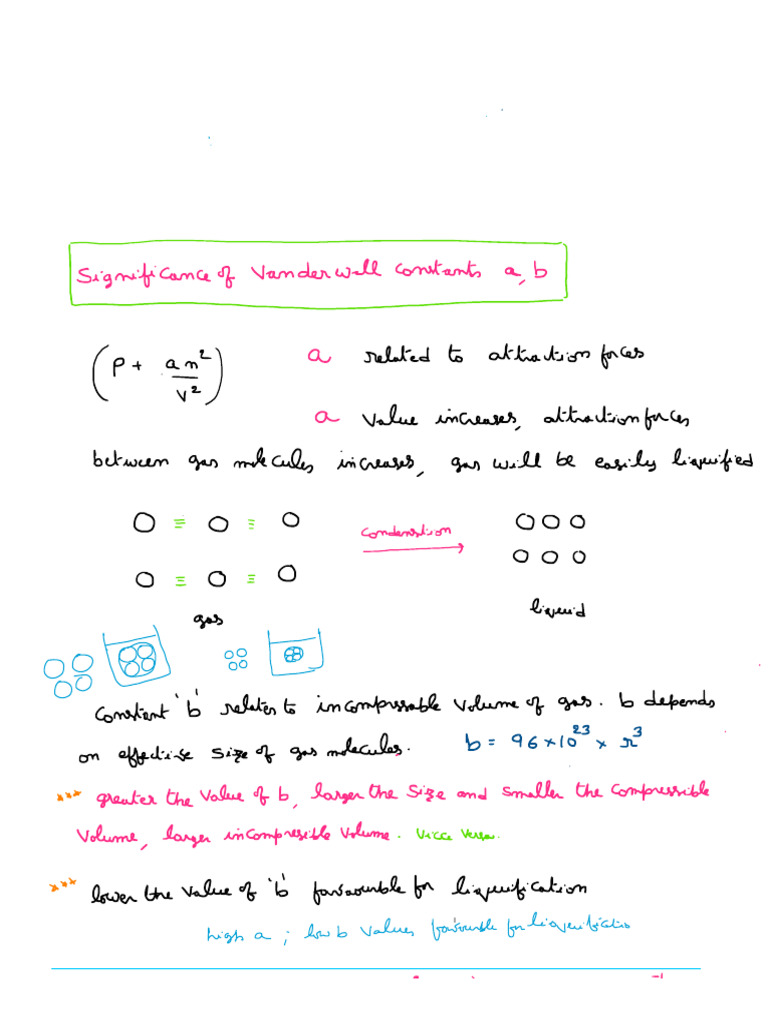 Significance of Vanderwall constants a, b
(P + an²/V²) a related to attraction forces
a value increases, attraction forces
between gas molecules increases, gas will be easily liquified
condensation
gas liquid
Constant 'b' relates to incompressable volume of gas. b depends
on effective size of gas molecules. b = 96 × 10²³ × r³
*** greater the value of b, larger the size and smaller the compressible
volume, larger incompresible volume. Vicce Versa.
*** lower the value of 'b' favourable for liquification
high a ; low b values favourable for liquification